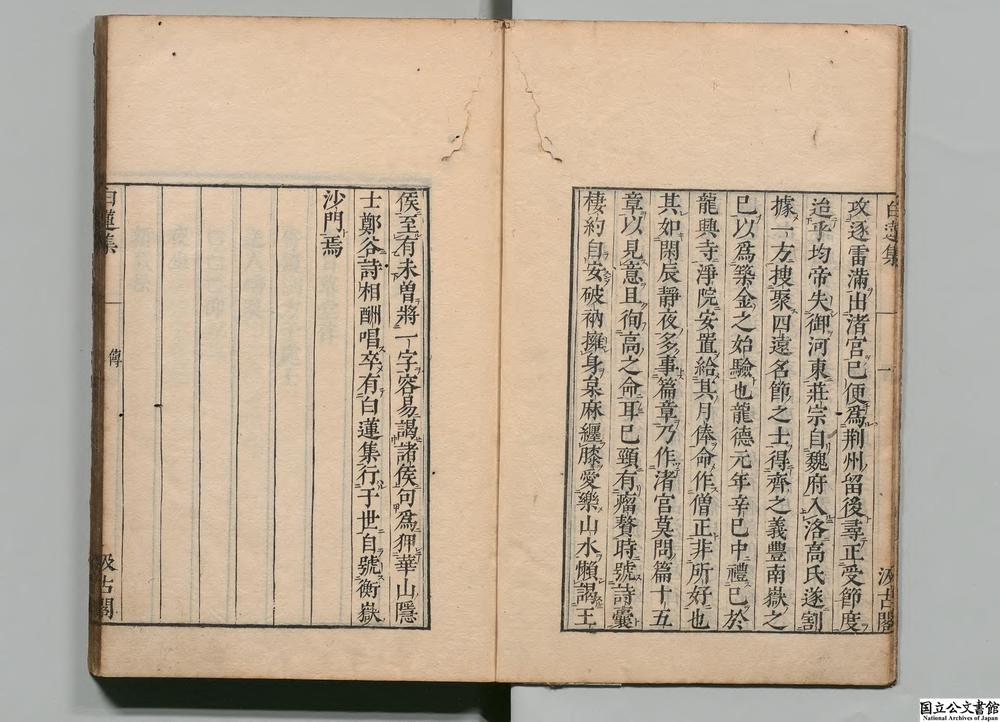 攻逐雷滿出渚宮已便爲荆州留後尋正受節度
迨乎均帝失御河東莊宗自魏府入洛高氏遂割
據一方搜聚四遠名節之士得齊之義豐南嶽之
已以爲築金之始驗也龍德元年辛巳中禮已於
龍興寺淨院安置給其月俸命作僧正非所好也
其如閑辰靜夜多事篇章乃作渚宮莫問篇十五
章以見意且徇高之命耳已頸有瘤贅時號詩囊
棲約自安破衲擁身枲麻纏膝愛樂山水懶謁王
白蓮集
一
汲古閣
侯至有未曾將一字容易謁諸侯句爲狎華山隱
士鄭谷詩相酬唱卒有白蓮集行于世自號衡嶽
沙門焉
白蓮集
傳
汲古閣
国立公文書館
National Archives of Japan